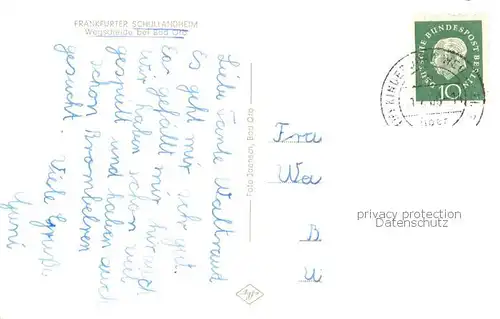 FRANKFURTER SCHULLANDHEIM
Wegscheide bei Bad Orb
Liebe Tante Waltraud
Es geht mir sehr gut.
Es gefällt mir hier und
wir haben schon viel
gespielt und haben auch
schon Brombeeren
gesucht. Viele Grüße
Foto Zachsan, Bad Orb
Agfa
DEUTSCHE BUNDESPOST BERLIN
10
Frau
Wa
B
U
privacy protection
Datenschutz